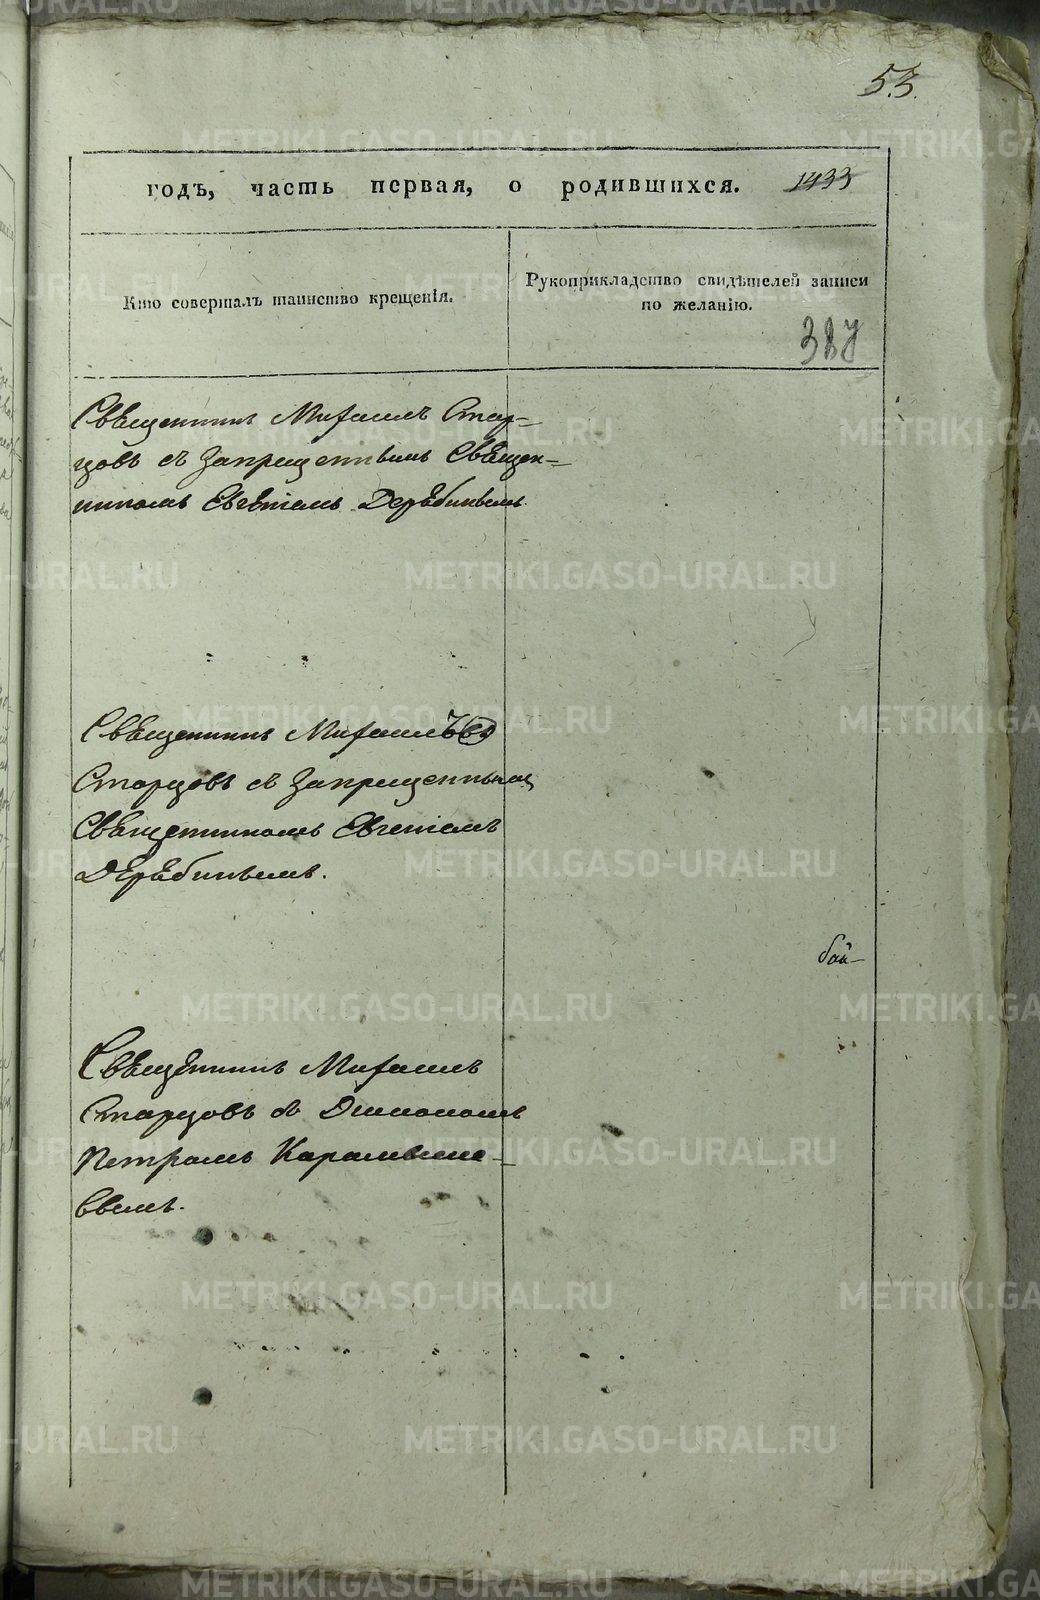 53.
годъ, часть первая, о родившихся.
Кто совершалъ таинство крещенія.
Рукоприкладство свидѣтелей записи
по желанію.
Священникъ Михаилъ Стар-
цовъ съ запрещеннымъ Священ-
никомъ Евгеніемъ Дерябинымъ
Священникъ Михаилъ
Старцовъ съ запрещеннымъ
Священникомъ Евгеніемъ
Дерябинымъ.
бай-
Священникъ Михаилъ
Старцовъ съ Дьякономъ
Петромъ
METRIKI.GASO-URAL.RU